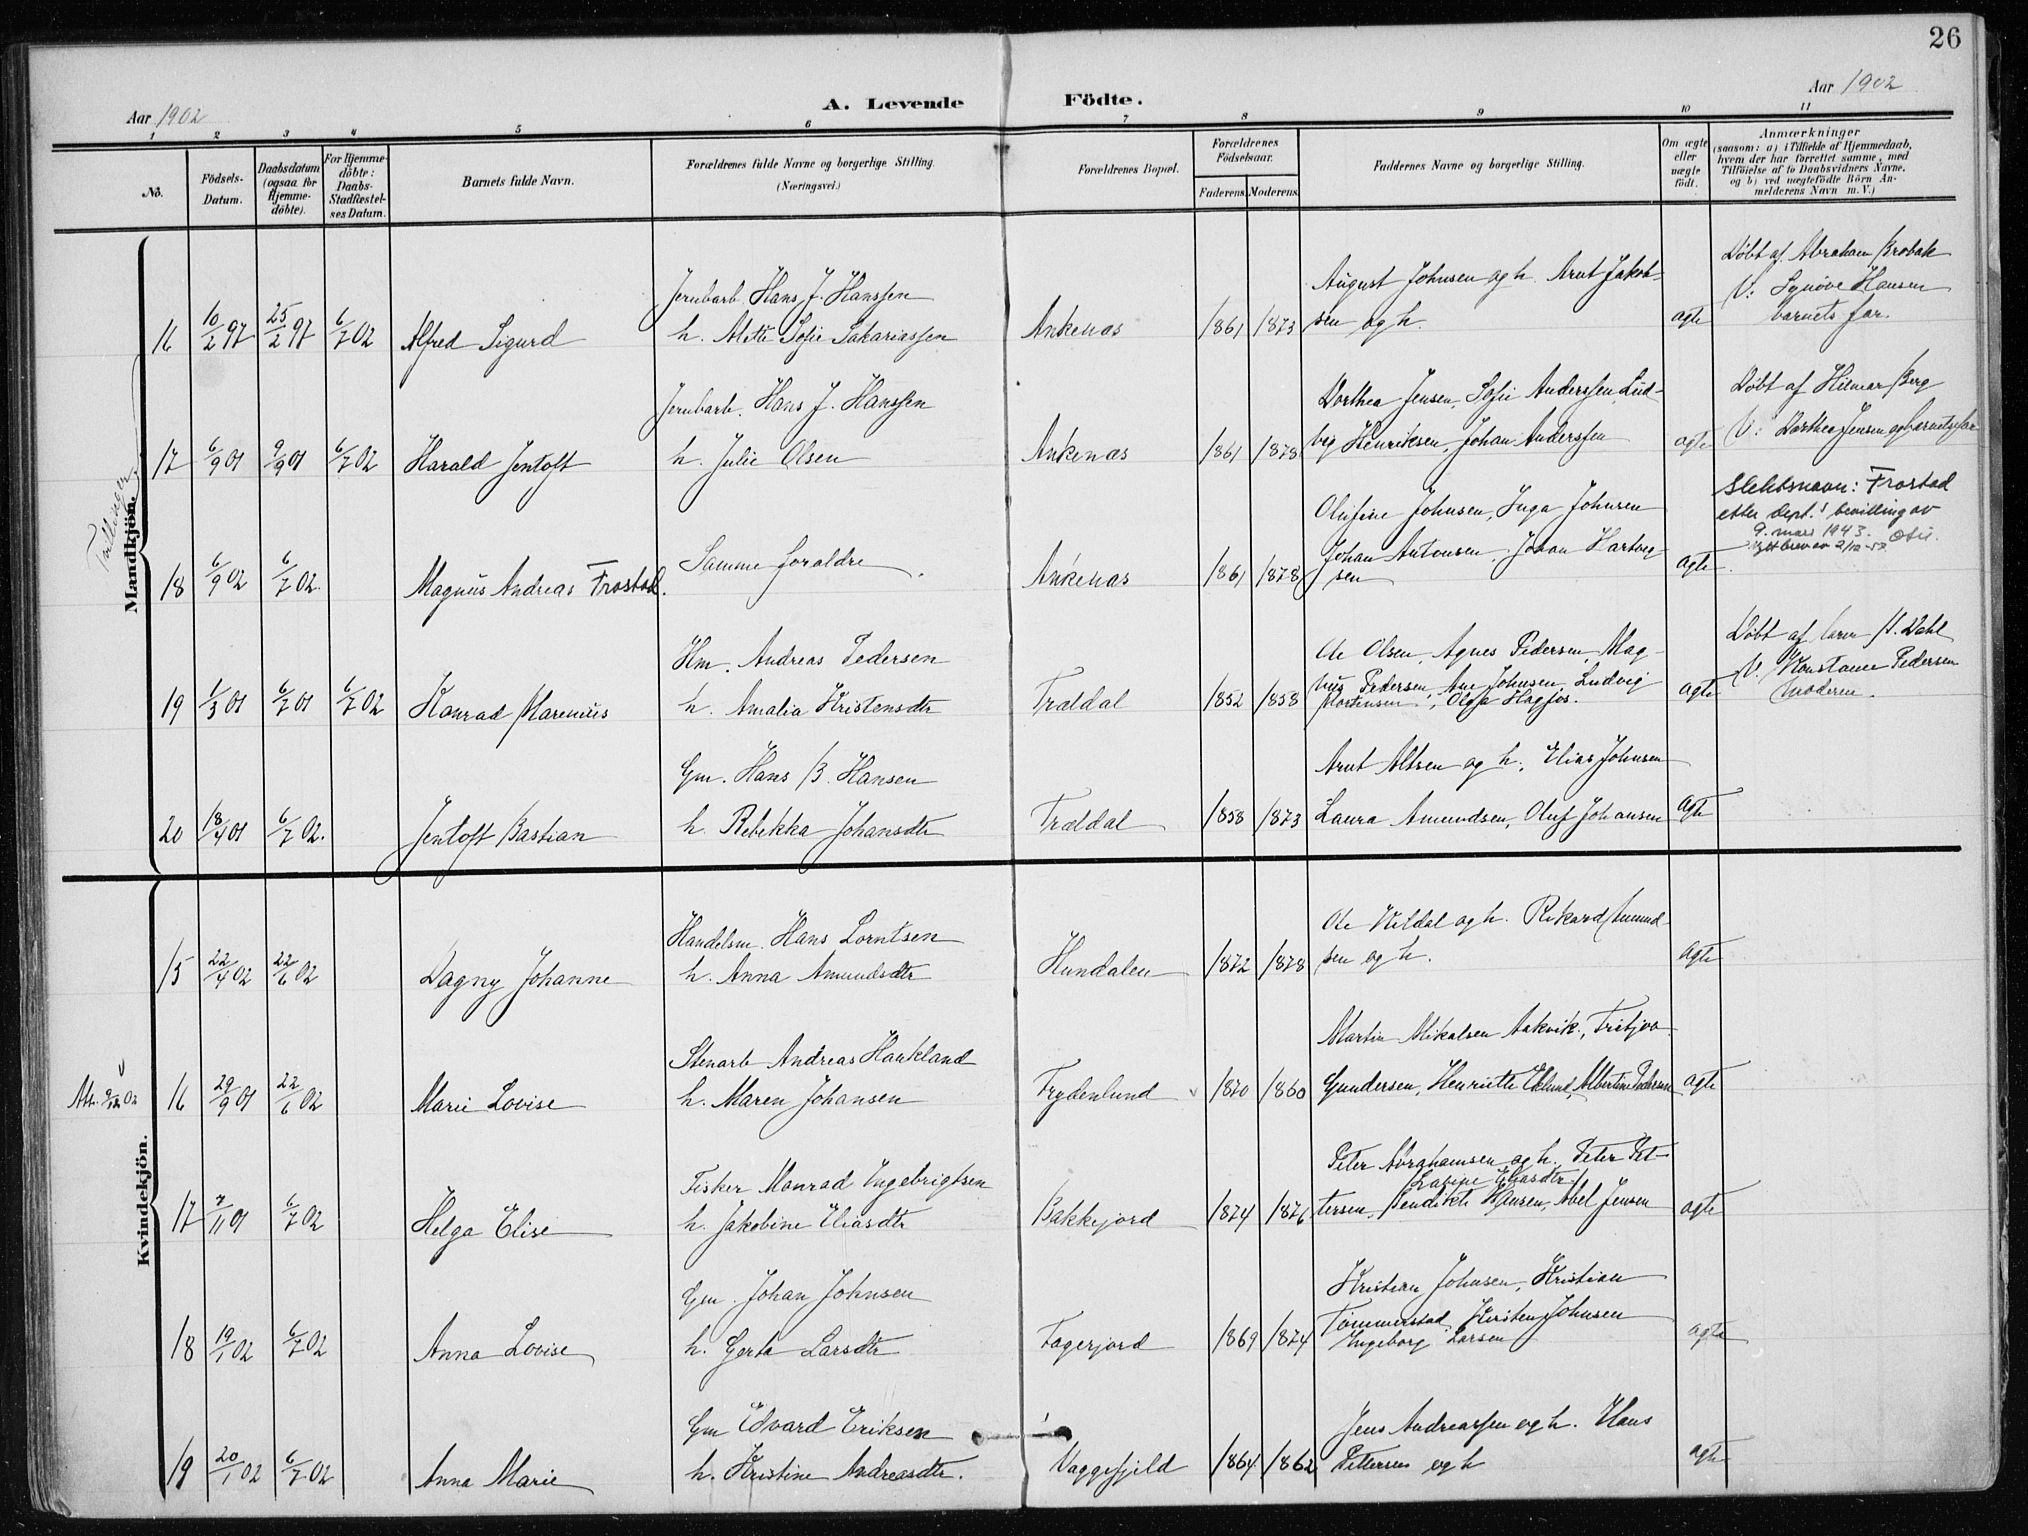 26
Aar 1902
A. Levende Födte.
Aar 1902
1 2 3 4 5 6 7 8 9 10 11
No.
Födsels-Datum.
Daabsdatum (ogsaa for Hjemme-döbte).
For Hjemme-döbte: Daabs-Stadfæstel-ses Datum.
Barnets fulde Navn.
Forældrenes fulde Navne og borgerlige Stilling.
(Næringsvei.)
Forældrenes Bopæl.
Forældrenes Födselsaar.
Faderens. Moderens.
Faddernes Navne og borgerlige Stilling.
Om ægte eller uægte födt.
Anmærkninger
(saasom: a) i Tilfælde af Hjemmedaab,
hvem der har forrettet samme, med
Tilföielse af to Daabsvidners Navne,
og b) ved uægtefödte Börn An-
melderens Navn m. V.)
Mandkjön.
Tvillinger
16 10/2 97 25/2 97 6/7 02 Alfred Sigurd
Jernbarb. Hans J. Hanssen
h. Mette Sofie Sakariassen
Ankenæs 1861 1873
August Johnsen og h. Arnt Jakob-
sen og h.
ægte
Døbt af Abraham Brobak
V: Synøve Hansen
barnets far.
17 6/9 01 9/9 01 6/7 02 Harald Jentoft
Jernbarb. Hans J. Hanssen
h. Julie Olsen
Ankenæs 1861 1878
Dorthea Jensen, Sofie Anderssen, Lud-
vig Henriksen, Johan Anderssen
ægte
Døbt af Hilmar Berg
V: Dorthea Jensen og barnets far
18 6/9 02 6/7 02. Magnus Andreas Frostad.
Samme foræ​ldre.
Ankenæs 1861 1878
Olufine Johnsen, Inga Johnsen
Johan Antonsen, Johan Hartvig-
sen
ægte.
Slektsnavn: Frostad
etter dept.s bevilling av
9. mars 1943.
19 1/3 01 6/7 01 6/7 02 Konrad Marenius
Hm. Andreas Pedersen
h. Amalia Kristensdtr
Trældal 1852 1858
Ole Olsen, Agnes Pedersen, Mag-
nus Pedersen, Ane Johnsen, Ludvig
Mortensen, Olga Hagfos.
ægte
Døbt af lærer P. Dahl
V. Konstance Pedersen
Moderen.
20 18/4 01 6/7 02. Jentoft Bastian
Gm. Hans B. Hansen
h. Rebekka Johansdtr
Trældal 1858 1873
Arnt Altsen og h, Elias Johnsen
Laura Amundsen, Oluf Johansen
ægte
Kvindekjön.
15 22/4 02 22/6 02 Dagny Johanne
Handelsm. Hans Lorntsen
h. Anna Amundsdtr
Hundalen 1872 1878
Ole Vildal og h. Rikard Amund-
sen og h.
ægte
Att. 9/12 02
16 29/9 01 22/6 02 Marie Lovise
Stenarb Andreas Haukland
h. Maren Johansen
Frydenlund 1870 1860
Martin Mikalsen Aakvik, Fritjov
Gundersen, Henriette Eklund, Albertine Pedersen
ægte
17 7/11 01 6/7 02 Helga Elise
Fisker Monrad Ingebrigtsen
h. Jakobine Eliasdtr
Bakkejord 1874 1876
Peter Abrahamsen og h. Peter Pet-
Lavine Eliasdtr
tersen, Bendikte Hansen, Abel Jensen
ægte
18 19/1 02 6/7 02 Anna Lovise
Gm. Johan Johnsen
h. Gerta Larsdtr
Fagerjord 1869 1874
Kristian Johnsen, Kristian
Tommerstad, Kirsten Johnsen
Ingeborg Larsen
ægte
19 20/1 02 6/7 02 Anna Marie
Gm Edvard Eriksen
h. Kristine Andreasdtr.
Vaggefjeld 1864 1862
Jens Andreassen og h. Hans
Pettersen og h
ægte